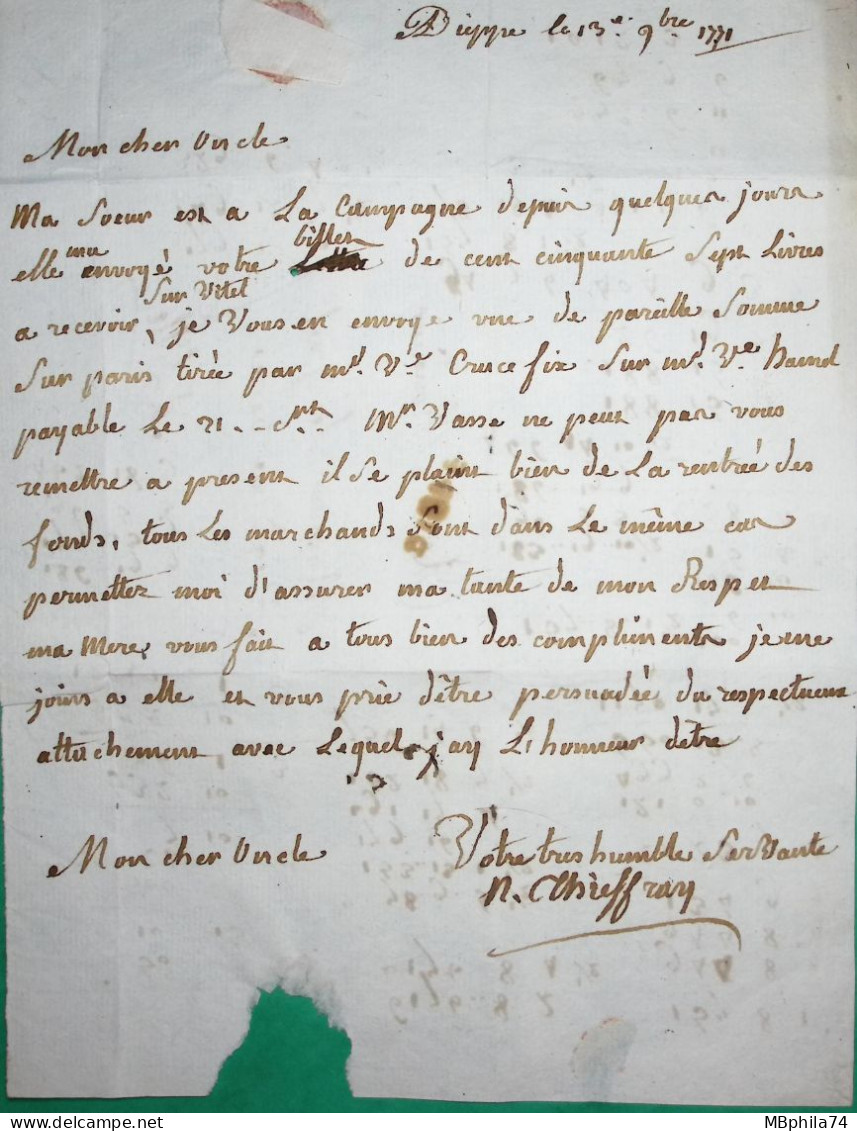 Dieppe le 13e. 9bre 1771
Mon cher Oncle
Ma Soeur est a La Campagne depuis quelques jours
elle ma envoyé votre billet de cent cinquante Sept Livres
Sur Vitel
a recevoir, je Vous en envoye une de pareille Somme
Sur paris tirée par md. Ve. Crucefix Sur md. Ve
payable Le 21. Mr. Vasse ne peut pas vous
remettre a present il Se plaint bien de La rentrée des
fonds, tous Les marchands Sont dans Le même cas
permettez moi d'assurer ma tante de mon Respet
ma Mere, vous fait a tous bien des compliments je me
joins a elle et vous prie d'être persuadée du respectueux
attachement avec Lequel jay L'honneur detre
Mon cher Oncle
Votre tres humble Servante
MBphila74